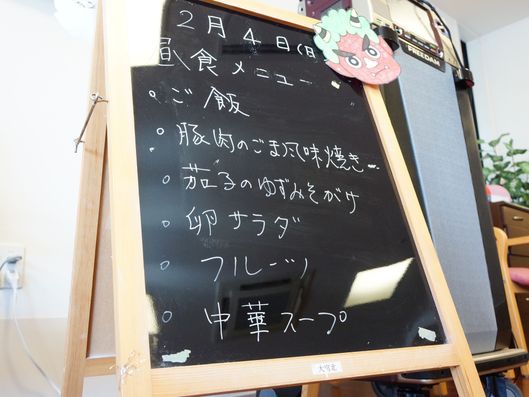 2月4日(月
昼食メニュー
○ご飯
○豚肉のごま風味焼き
○茄子のゆずみそがけ
○卵サラダ
○フルーツ
○中華スープ
FREEDAM